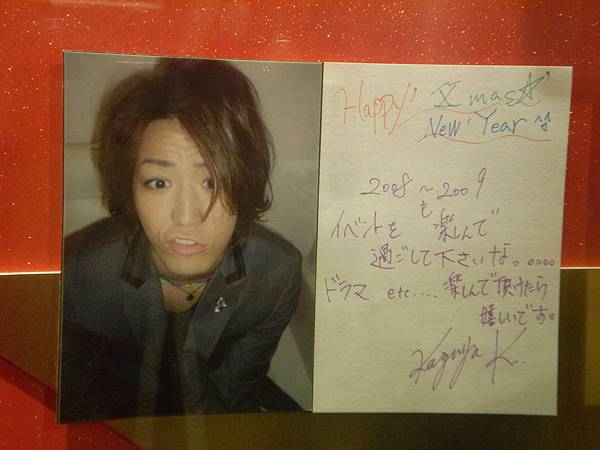 Happy' Xmas☆'
New' Year ^^
2008～2009
も
イベントを 楽しんで
過ごして下さいなっ。。。。
ドラマ etc.... 楽しんで頂けたら
嬉しいです。
Kazuya K.